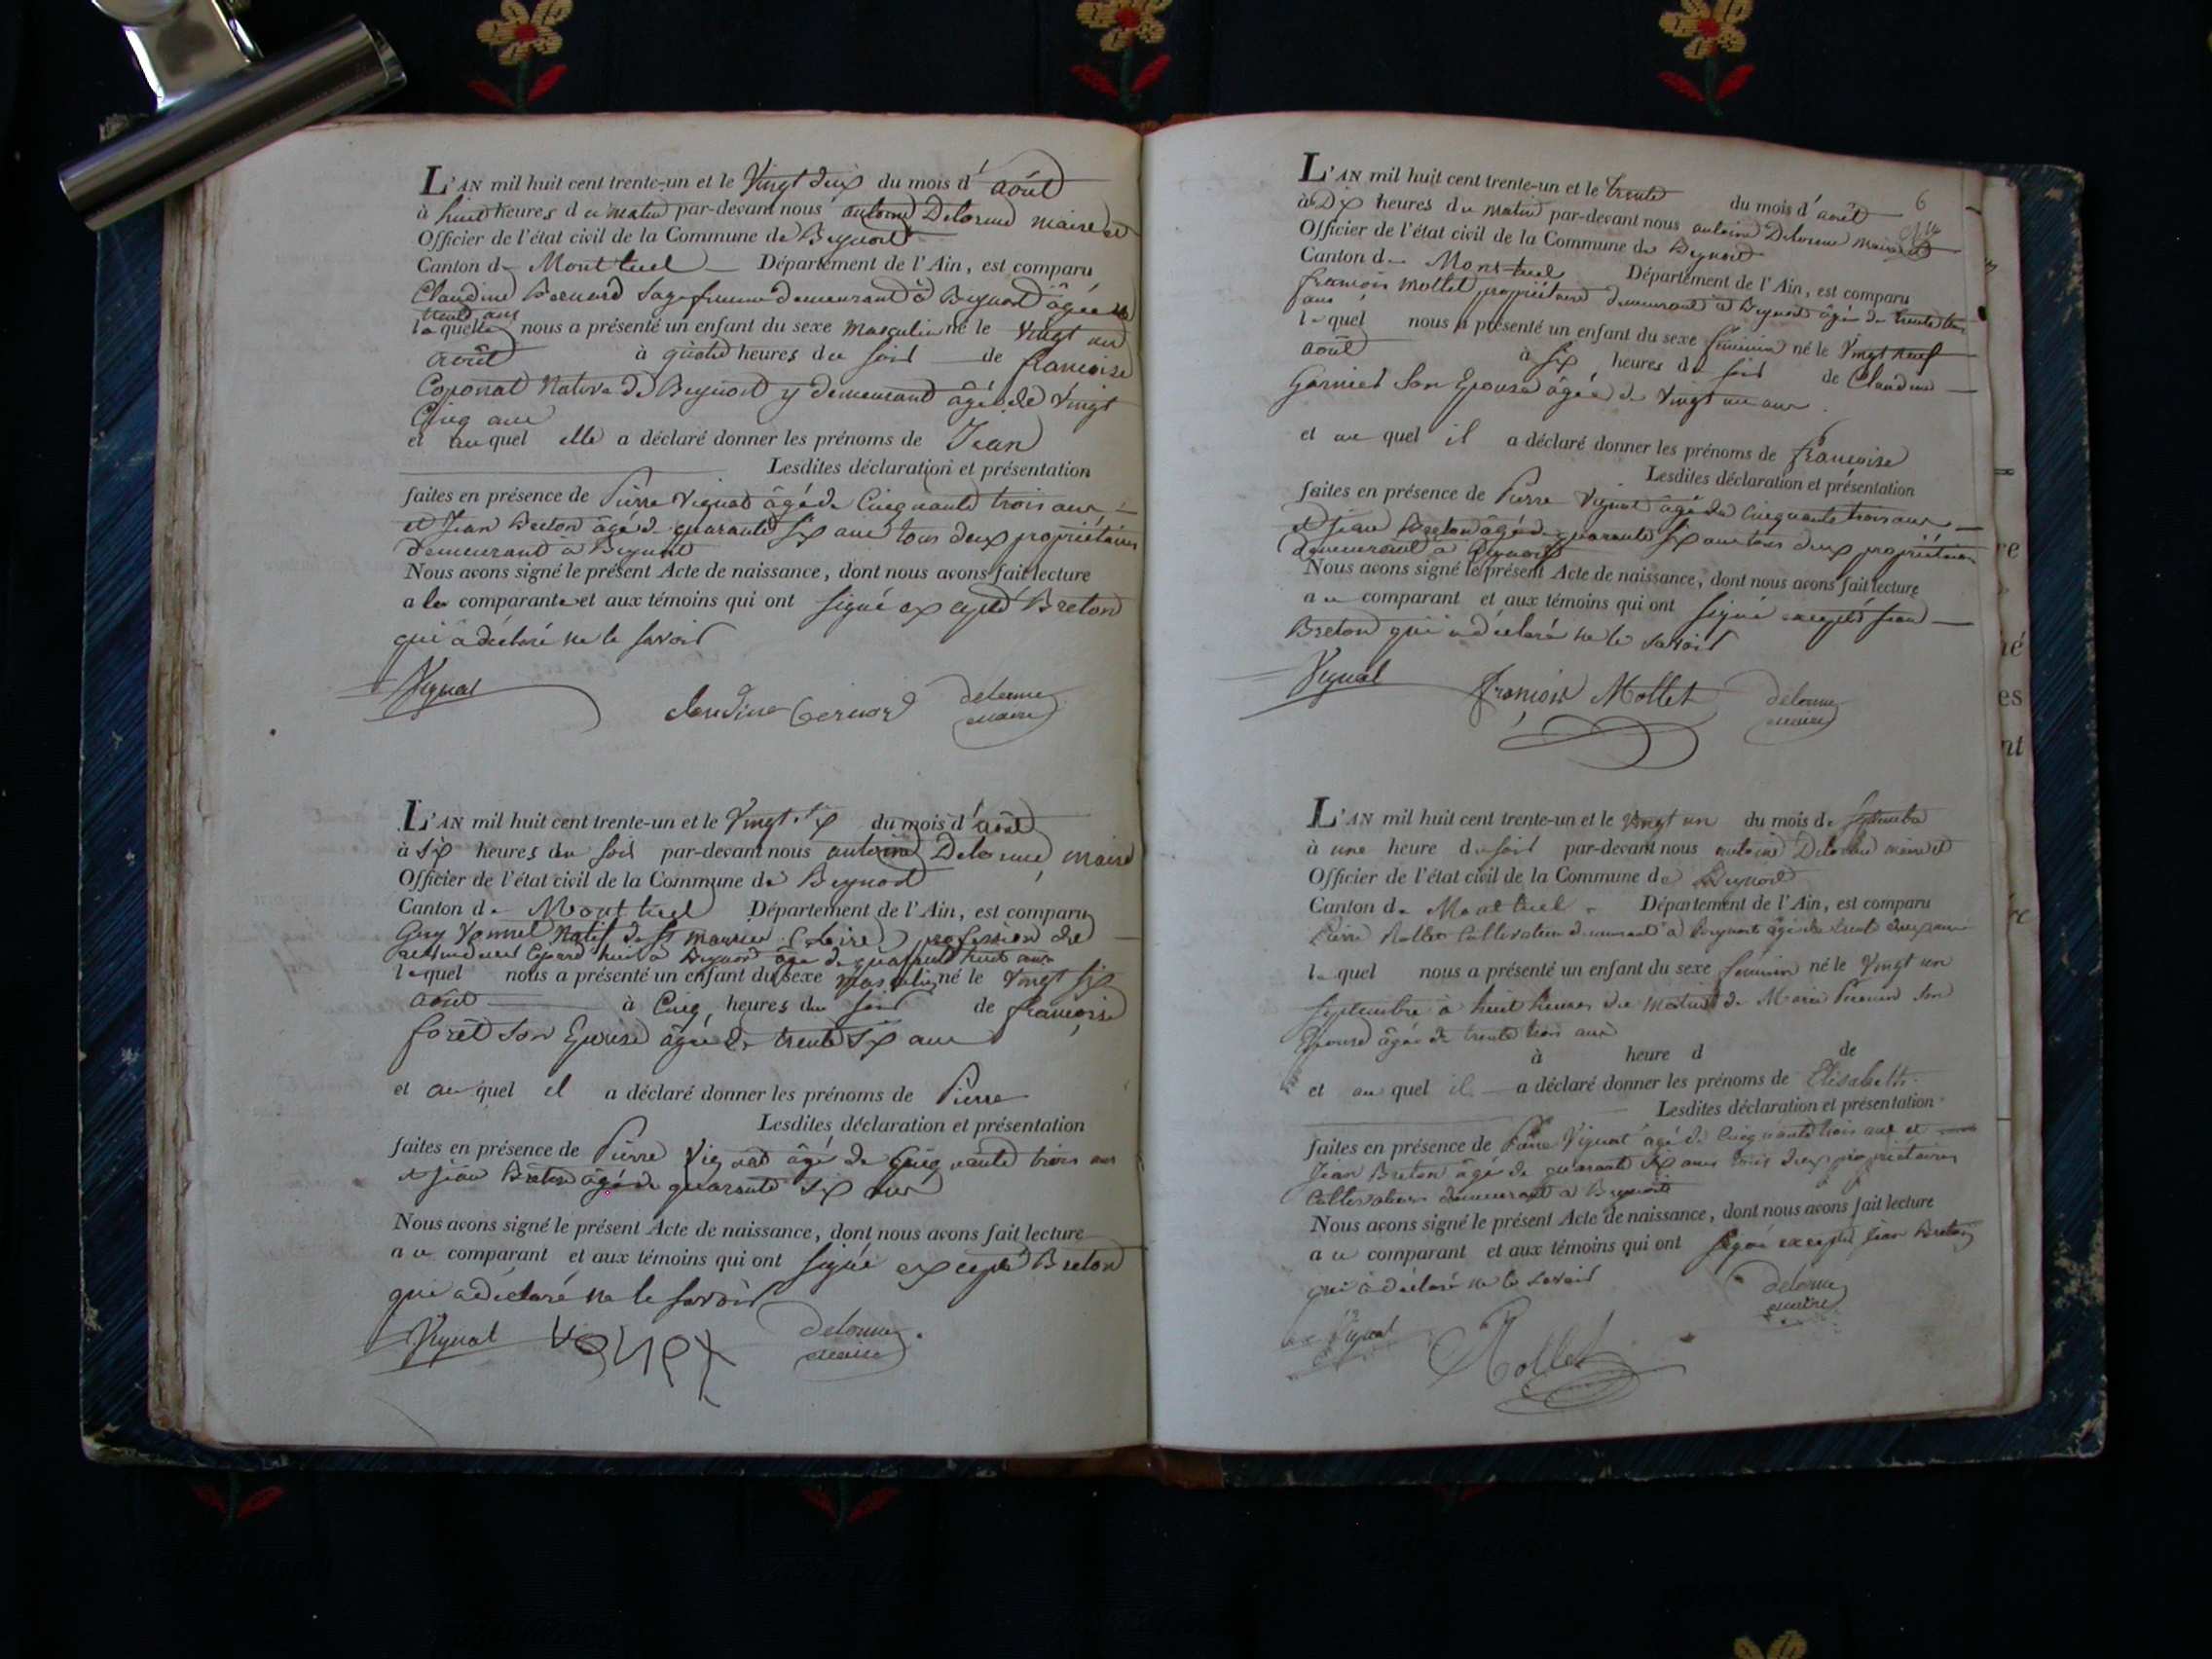 L'AN mil huit cent trente-un et le Vingt deux du mois d'août
à huit heures du matin par-devant nous antoine Delorme maire et
Officier de l'état civil de la Commune de Beynost
Canton de Montluel Département de l'Ain, est comparu
Claudine Bernard Sage femme demeurant à Beynost âgée de
ans
laquelle nous a présenté un enfant du sexe masculin né le vingt un
août à quatre heures du soir de françoise
Coponat Native de Beynost y demeurant âgée de Vingt
Cinq ans
et auquel elle a déclaré donner les prénoms de Jean
Lesdites déclaration et présentation
faites en présence de Pierre Vignat âgé de Cinquante trois ans
et Jean Breton âgé de quarante Six ans tous deux propriétaires
demeurant à Beynost
Nous avons signé le présent Acte de naissance, dont nous avons fait lecture
a la comparante et aux témoins qui ont signé excepté Breton
qui a déclaré ne le savoir
Vignat claudine bernard delorme
maire
L'AN mil huit cent trente-un et le Vingt six du mois d'août
à six heures du soir par-devant nous antoine Delorme, maire
Officier de l'état civil de la Commune de Beynost
Canton de Montluel Département de l'Ain, est comparu
Guy Natif de St maurice (Loire) profession de
à Beynost âgé de quarante huit ans
lequel nous a présenté un enfant du sexe masculin né le vingt six
août à Cinq heures du soir de françoise
forêt son Epouse âgée de trente six ans
et auquel il a déclaré donner les prénoms de Pierre
Lesdites déclaration et présentation
faites en présence de Pierre Vignat âgé de Cinquante trois ans
et jean Breton âgé de quarante six ans
Nous avons signé le présent Acte de naissance, dont nous avons fait lecture
au comparant et aux témoins qui ont signé excepté Breton
qui a déclaré ne le savoir
Vignat delorme
maire
6
L'AN mil huit cent trente-un et le trente du mois d'août
à Dix heures du matin par-devant nous antoine Delorme maire et
Officier de l'état civil de la Commune de Beynost
Canton de Montluel Département de l'Ain, est comparu
françois mollet propriétaire demeurant à Beynost âgé de trente
ans
lequel nous a présenté un enfant du sexe féminin né le Vingt neuf
août à six heures du soir de Claudine
Garnier son Epouse âgée de Vingt un ans
et auquel il a déclaré donner les prénoms de françoise
Lesdites déclaration et présentation
faites en présence de Pierre Vignat âgé de Cinquante trois ans
et jean Breton âgé de quarante six ans tous deux propriétaires
demeurant à Beynost
Nous avons signé le présent Acte de naissance, dont nous avons fait lecture
au comparant et aux témoins qui ont signé excepté jean
Breton qui a déclaré ne le savoir
Vignat françois Mollet delorme
maire
L'AN mil huit cent trente-un et le vingt un du mois de septembre
à une heure du soir par-devant nous antoine Delorme maire et
Officier de l'état civil de la Commune de Beynost
Canton de Montluel Département de l'Ain, est comparu
Pierre Cultivateur demeurant à Beynost âgé de trente deux ans
lequel nous a présenté un enfant du sexe féminin né le Vingt un
Septembre à huit heures du matin de Marie son
Epouse âgée de trente trois ans
à heure d de
et auquel il a déclaré donner les prénoms de Elisabeth
Lesdites déclaration et présentation
faites en présence de Pierre Vignat âgé de Cinquante trois ans et
Jean Breton âgé de quarante six ans tous deux propriétaires
Cultivateurs demeurant à Beynost
Nous avons signé le présent Acte de naissance, dont nous avons fait lecture
au comparant et aux témoins qui ont signé excepté jean Breton
qui a déclaré ne le savoir
delorme
maire
Vignat